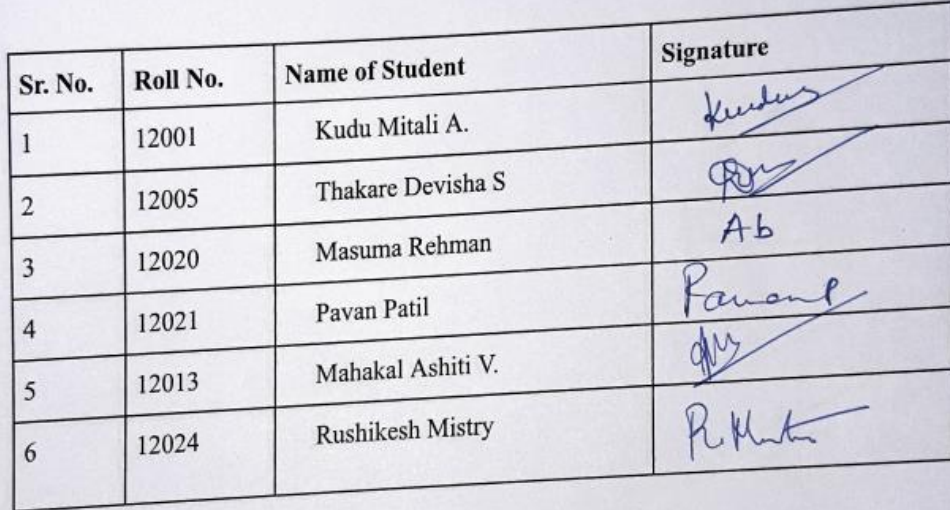 Sr. No. Roll No. Name of Student Signature
1 12001 Kudu Mitali A.
2 12005 Thakare Devisha S
3 12020 Masuma Rehman Ab
4 12021 Pavan Patil
5 12013 Mahakal Ashiti V.
6 12024 Rushikesh Mistry